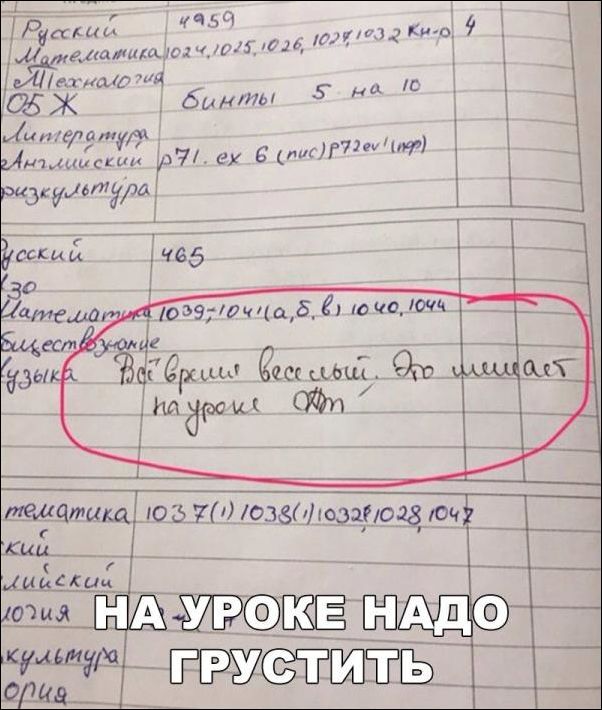 Русский 4959
Математика 1024, 1025, 1026, 1027, 1032 Кн-р 4
Технология
ОБЖ бинты 5 на 10
Литература
Английский р71. ex 6 (пис) р72 ех1 (пер)
физкультура
Русский 465
ИЗО
Математика 1039, 1041(а, б, в) 1040, 1044
бществознание
узыка Всё время веселый. Это мешает
на уроке
тематика 1037(1) 1038(1) 1032, 1028, 1047
кий
лийский
логия
культура
ория
НА УРОКЕ НАДО
ГРУСТИТЬ